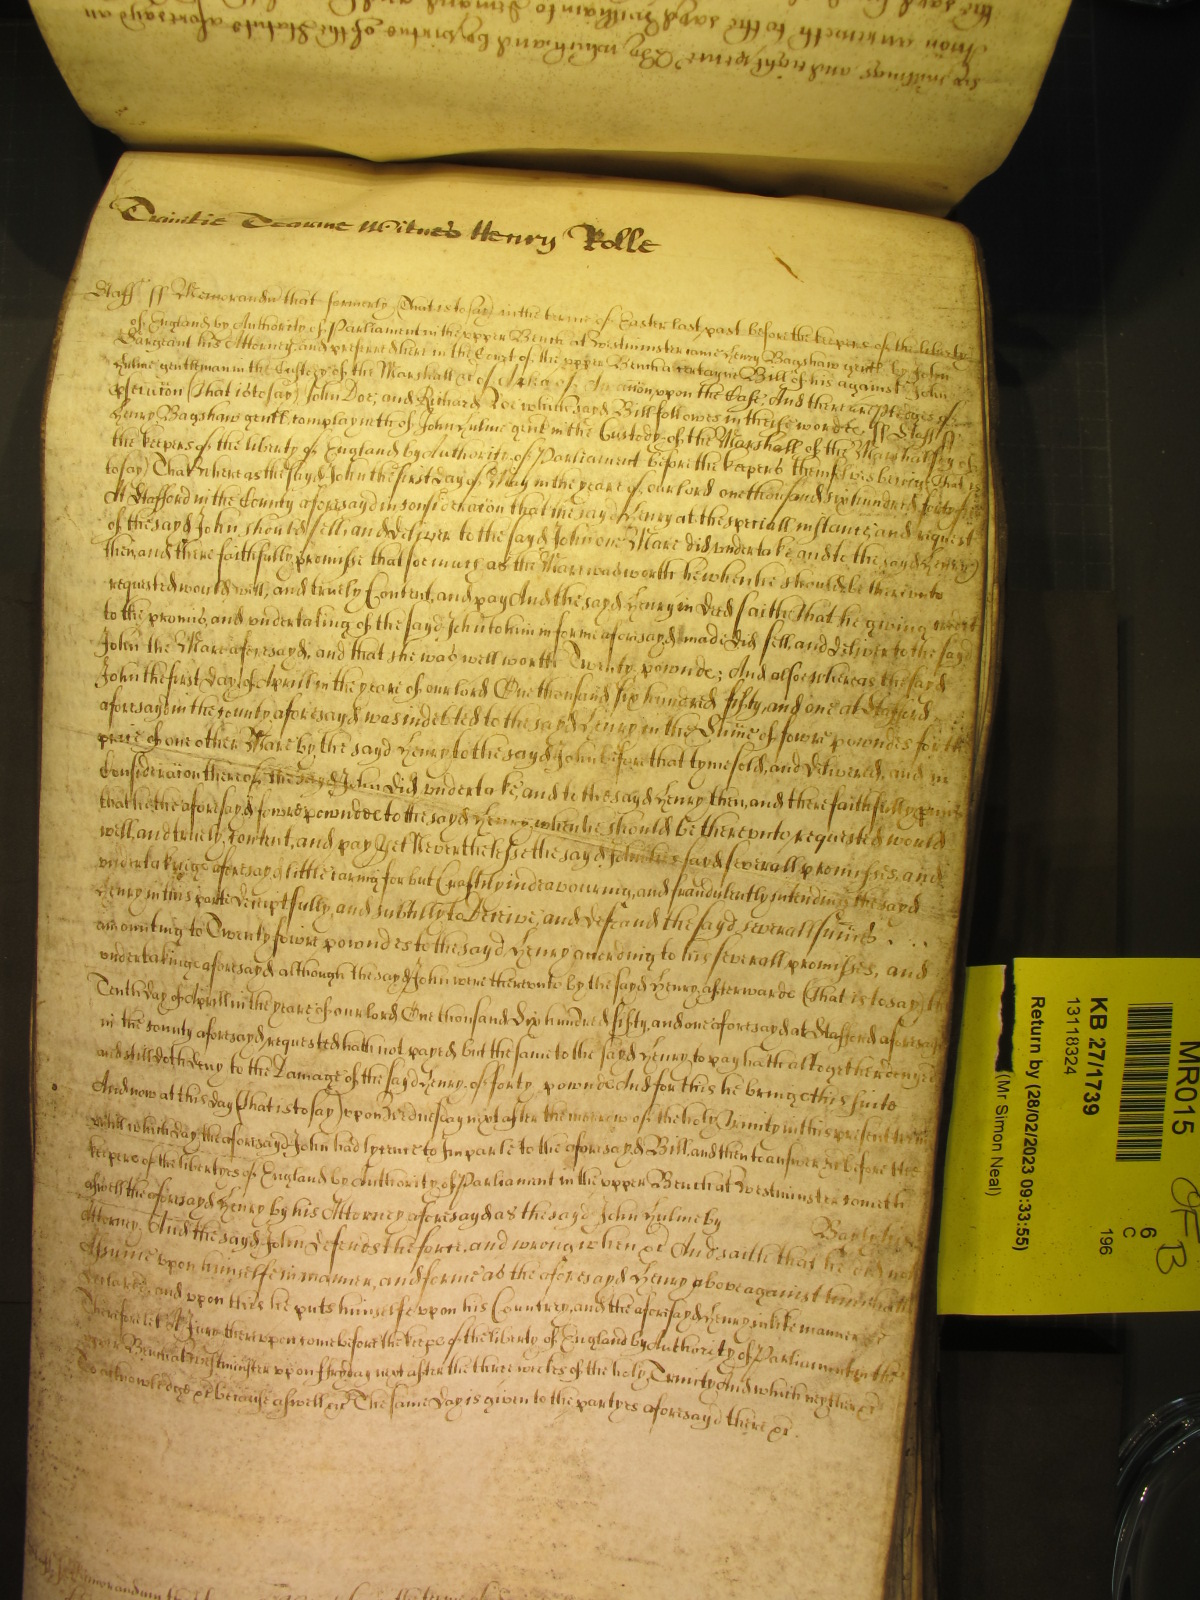 six shillings and eight pence By which and by virtue of the Statute aforesayd an
Accion accrueth to the sayd William to demand
the sayd
Trinitie Tearme Witnes Henry Rolle
Staff ss Memorandum that formerly (That is to say) in the terme of Easter last past before the keepers of the liberty
of England by Authority of Parliament in the upper Bench at Westminster came Henry Bagshaw gentl by John
Sargeant his Attorney and preferred here in the Court of the upper Bench a certayne Bill of his against John
Hulme gentleman in the Custody of the Marshall &c of a plea of An accion upon the Case And there are pledges of
prosecucion (That is to say) John Doe, and Richard Roe which sayd Bill followes in theise wordes ss Staff ss
Henry Bagshaw gentl complayneth of John Hulme gent in the Custody of the Marshall of the Marshalsey of
the keepers of the liberty of England by Authority of Parliament before the keepers themselves beeing That is
to say) That whereas the sayd John the first day of May in the yeare of our lord one thousand six hundred forty
At Stafford in the County aforesayd in consideracion that the sayd Henry at the speciall instance, and request
of the sayd John should sell, and deliver to the sayd John one Mare did undertake and to the sayd Henry
then, and there faithfully promisse that soe much as the Mare was worth he when he should be thereunto
requested would well, and truely Content, and pay And the sayd Henry in deed saithe That he giving creditt
to the promis, and undertaking of the sayd John to him in forme aforesayd made did sell, and deliver to the sayd
John the Mare aforesayd, and that she was well worth Twenty powndes; And alsoe whereas the sayd
John the first day of Aprill in the yeare of our lord One thousand six hundred fifty, and one at Stafford
aforesayd in the County aforesayd was indebted to the sayd Henry in the Summe of fowre powndes for the
price of one other Mare by the sayd Henry to the sayd John before that tyme sold, and delivered, and in
Consideracion thereof the sayd John did undertake, and to the sayd Henry then, and there faithfully promise
that he the aforesayd fowre powndes to the sayd Henry when he should be thereunto requested would
well, and truely Content, and pay Yet Neverthelesse the sayd John his sayd severall promisses, and
undertakinge aforesayd little caring for but Craftily indeavouring, and fraudulently intending the sayd
Henry in this parte deceiptfully, and subtilly to Deceive, and Defraud the sayd severall summes
amounting to Twenty fowre powndes to the sayd Henry according to his severall promisses, and
undertakinge aforesayd although the sayd John were thereunto by the sayd Henry, afterwarde (That is to say) the
Tenth day of Aprill in the yeare of our lord One thousand Six hundred fifty, and one aforesayd at Stafford aforesayd
in the County aforesayd requested hath not payed but the same to the sayd Henry to pay hath altogether denyed
and still doth deny to the Damage of the sayd Henry of forty powndes And for this he bringe this suite
And now at this day (that is to say) upon Wednesday next after the morrow of the holy Trinity in this present terme
untill which day the aforesayd John had lycence to Imparle to the aforesayd Bill, and then to answer &c before the
keepers of the libertyes of England by Authority of Parliament in the upper Bench at Westminster cometh
aswell the aforesayd Henry by his Attorney aforesayd as the sayd John Hulme by Bayly his
Attorney. And the sayd John defends the force, and wrong when &c And saith that he did not
Assume upon himselfe in manner, and forme as the aforesayd Henry above against him hath
declared, and upon this he puts himselfe upon his Countrey, and the aforesayd Henry in like manner &c
Therefore let A Jury thereupon come before the keepers of the liberty of England by Authority of Parliament in the
upper Bench at Westminster upon fryday next after the three weekes of the holy Trinity And which neyther &c
To acknowledge &c because aswell &c The same day is given to the partyes aforesayd there &c.
Memorandum
MR015
6
C
196
KB 27/1739
13118324
Return by (28/02/2023 09:33:55)
(Mr Simon Neal)